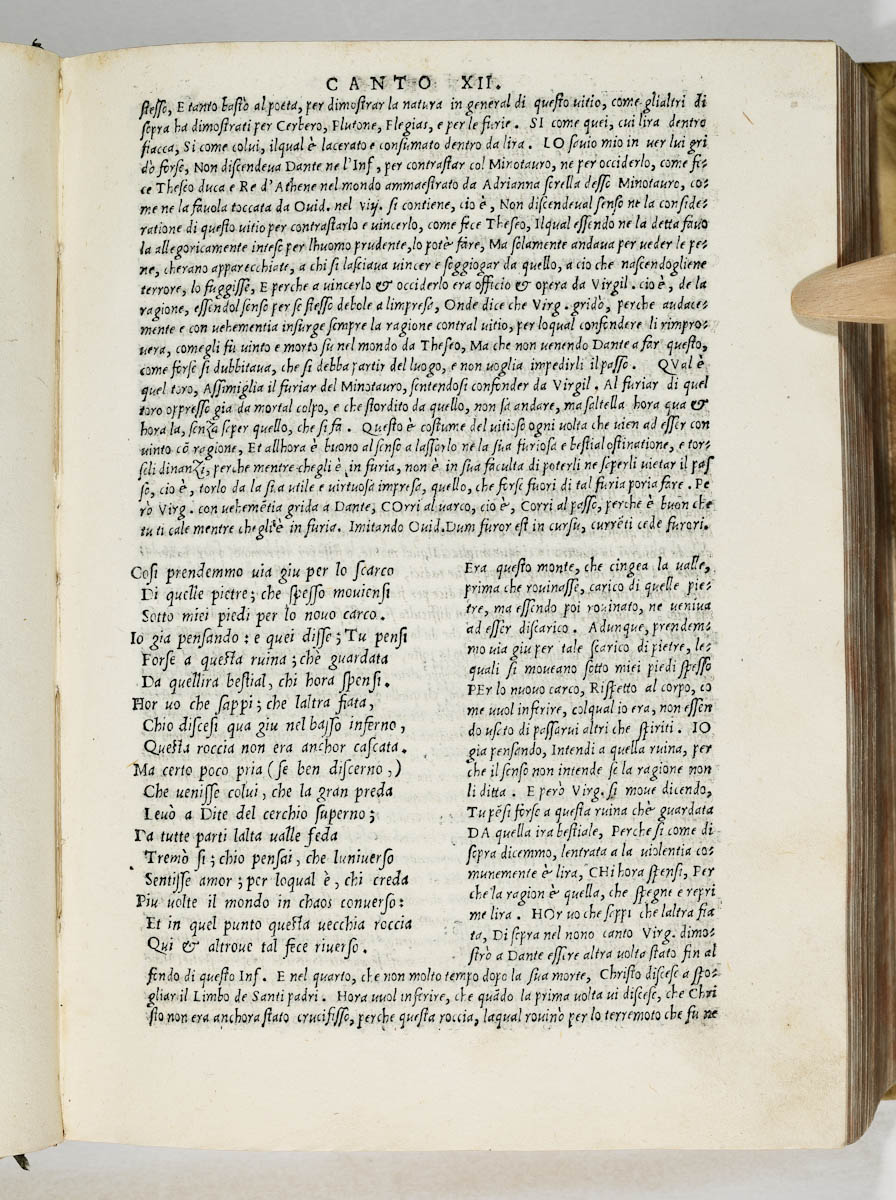 CANTO XII.
stesso, E tanto bastò al poeta, per dimostrar la natura in general di questo uitio, come glialtri di
sopra ha dimostrati per Cerbero, Plutone, Flegias, e per le furie. SI come quei, cui lira dentro
fiacca, Si come colui, ilqual è lacerato e consumato dentro da lira. LO sauio mio in uer lui gri
dò forse, Non discendeua Dante ne l'Inf, per contrastar col Minotauro, ne per occiderlo, come fe=
ce Theseo duca e Re d'Athene nel mondo ammaestrato da Adrianna sorella desso Minotauro, co=
me ne la fauola toccata da Ouid. nel viij. si contiene, cio è, Non discendeual senso ne la conside=
ratione di questo uitio per contrastarlo e uincerlo, come fece Theseo, Ilqual essendo ne la detta fauo
la allegoricamente inteso per lhuomo prudente, lo potè fare, Ma solamente andaua per ueder le pe=
ne, cherano apparecchiate, a chi si lasciaua uincer e soggiogar da quello, a cio che nascendogliene
terrore, lo fuggisse, E perche a uincerlo & occiderlo era officio & opera da Virgil. cio è, de la
ragione, essendol senso per se stesso debole a limpresa, Onde dice che Virg. gridò, perche audace=
mente e con uehementia insurge sempre la ragione contral uitio, per loqual confondere li rimpro=
uera, comegli fù uinto e morto sù nel mondo da Theseo, Ma che non uenendo Dante a far questo,
come forse si dubbitaua, che si debba partir del luogo, e non uoglia impedirli il passo. QVal è
quel toro, Assimiglia il furiar del Minotauro, sentendosi confonder da Virgil. Al furiar di quel
toro oppresso gia da mortal colpo, e che stordito da quello, non sà andare, ma saltella hora qua &
hora la, senza saper quello, che si fà. Questo è costume del uitioso ogni uolta che uien ad esser con
uinto cō ragione, Et allhora è buono al senso a lassarlo ne la sua furiosa e bestial ostinatione, e tor=
seli dinanzi, perche mentre chegli è in furia, non è in sua facultà di poterli ne saperli uietar il pas
so, cio è, torlo da la sua utile e uirtuosa impresa, quello, che forse fuori di tal furia poria fare. Pe
rò Virg. con uehemētia grida a Dante, COrri al uarco, cio è, Corri al passo, perche è buon che
tu ti cale mentre chegli è in furia. Imitando Ouid. Dum furor est in cursu, currēti cede furori.
Cosi prendemmo uia giu per lo scarco
Di quelle pietre; che spesso mouiensi
Sotto miei piedi per lo nouo carco.
Io gia pensando: e quei disse; Tu pensi
Forse a questa ruina; chè guardata
Da quellira bestial, chi hora spensi.
Hor uo che sappi; che laltra fiata,
Chio discesi qua giu nel basso inferno,
Questa roccia non era anchor cascata.
Ma certo poco pria (se ben discerno,)
Che uenisse colui, che la gran preda
Leuò a Dite del cerchio superno;
Da tutte parti lalta ualle feda
Tremò si; chio pensai, che luniuerso
Sentisse amor; per loqual è, chi creda
Piu uolte il mondo in chaos conuerso:
Et in quel punto questa uecchia roccia
Qui & altroue tal fece riuerso.
Era questo monte, che cingea la ualle,
prima che rouinasse, carico di quelle pie=
tre, ma essendo poi rouinato, ne ueniua
ad esser discarico. Adunque, prendem=
mo uia giu per tale scarico di pietre, le=
quali si moueano sotto miei piedi spesso
PEr lo nuouo carco, Rispetto al corpo, co
me uuol inferire, colqual io era, non essen
do usato di passarui altri che spiriti. IO
gia pensando, Intendi a quella ruina, per
che il senso non intende se la ragione non
li ditta. E però Virg. si moue dicendo,
Tu pēsi forse a questa ruina chè guardata
DA quella ira bestiale, Perche si come di
sopra dicemmo, lentrata a la uiolentia co=
munemente è lira, CHi hora spensi, Per
che la ragion è quella, che spegne e repri
me lira. HOr uo che seppi che laltra fia
ta, Di sopra nel nono canto Virg. dimo=
strò a Dante essere altra uolta stato fin al
fondo di questo Inf. E nel quarto, che non molto tempo dopo la sua morte, Christo discese a spo=
gliar il Limbo de Santi padri. Hora uuol inferire, che quādo la prima uolta ui discese, che Chri
sto non era anchora stato crucifisso, perche questa roccia, laqual rouinò per lo terremoto che fu ne